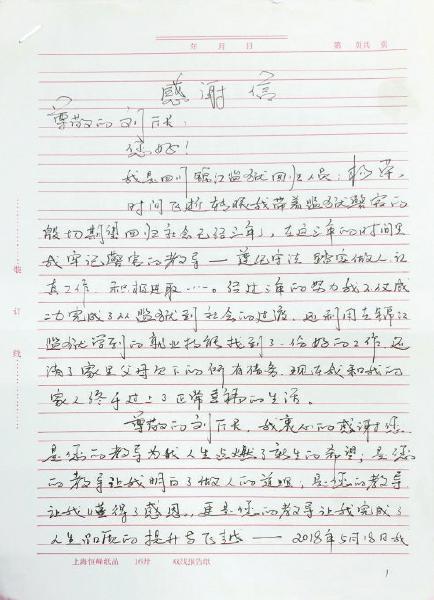 年 月 日 第 页共 页
感谢信
尊敬的刘厅长:
您好!
我是四川锦江监狱回归人员:杨荣。
时间飞逝转眼我带着监狱警官的
殷切期望回归社会已经三年了,在这三年的时间里
我牢记警官的教导——遵纪守法 踏实做人,认
真工作 积极进取…。经过三年的努力我不仅成
功完成了从监狱到社会的过渡,还利用在锦江
监狱学到的职业技能找到了一份好的工作,还
清了家里父母欠下的所有债务,现在我和我的
家人终于过上了正常幸福的生活。
尊敬的刘厅长,我衷心的感谢您
是您的教导为我人生点燃了新生的希望,是您
的教导让我明白了做人的道理,是您的教导
让我懂得了感恩,更是您的教导让我完成了
人生品质的提升与飞越——2018年5月18日我
上海恒峰纸品 16开 双线报告纸
1
装
订
线